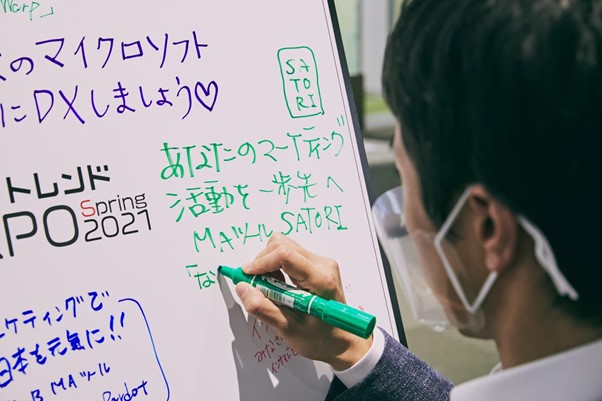 Warp」
のマイクロソフト
にDXしましょう♡
SA
TO
RI
あなたのマーケティング
活動を一歩先へ
MAツール SATORI
「な
トレンド
XPO Spring
2021
ケティングで
日本も元気に!!
B MAツール
Pardot
みなさ